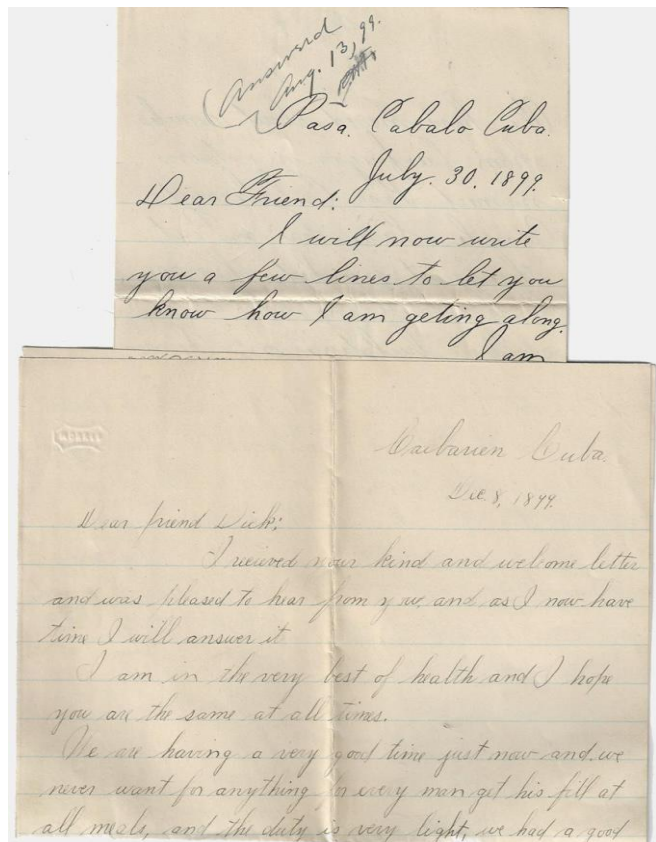 (Answered
Aug. 13, 99.
Pasa. Cabalo Cuba.
July. 30. 1899.
Dear Friend:
I will now write
you a few lines to let you
know how I am geting along.
I am
Caibarien Cuba.
Dec. 8, 1899.
Dear friend Dick:
I recieved your kind and welcome letter
and was pleased to hear from you, and as I now have
time I will answer it
I am in the very best of health and I hope
you are the same at all times.
We are having a very good time just now and we
never want for anything for every man get his fill at
all meals, and the duty is very light, we had a good